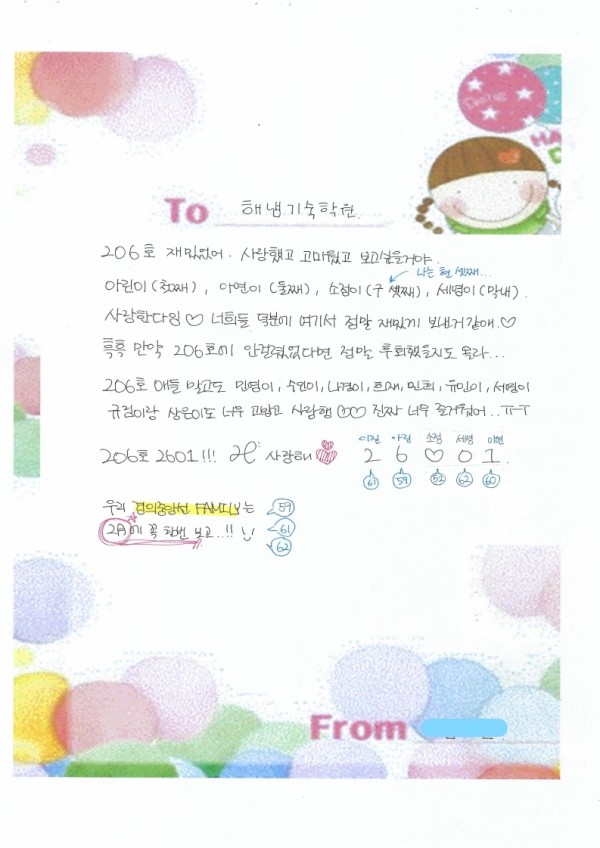 To 해냄기숙학원
206호 재밌었어. 사랑했고 고마웠고 보고싶을거야.
나는 현 셋째...
아린이(첫째), 아연이(둘째), 소정이(구 셋째), 세영이(막내).
사랑한다잉 ♡ 너희들 덕분에 여기서 정말 재밌게 보낸거같애.♡
흑흑 만약 206호에 안걸렸었다면 정말 후회했을지도 몰라...
206호 애들 말고도 민영이, 수연이, 나경이, 희재, 민희, 유민이, 서영이
규정이랑 상은이도 너무 고맙고 사랑행 ♡♡ 진짜 너무 즐거웠어..ㅠㅜ
206호 2601!!! 사랑해
2 6 ♡ 0 1.
61 59 52 62 60
우리 경의중앙선 FAMILY는 59
2A에 꼭 한번 보고..!! 61
62
From